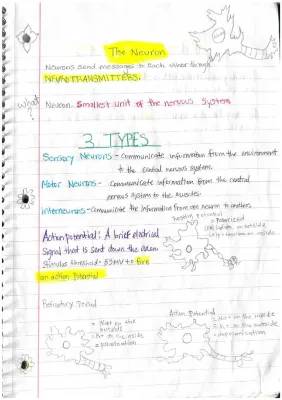 The Neuron
Neurons send messages to each other through
NEUROTRANSMITTERS.
what?
Neuron: Smallest unit of the nervous system
3 TYPES
Sensory Neurons - communicate information from the environment
to the central nervous system.
Motor Neurons - communicate information from the central
nervous system to the muscles.
Interneurons - communicate the information from one neuron to another.
Resting Potential
= Polarized
Action potential: A brief electrical
signal that is sent down the axon
Stimulus threshold = 55MV to fire
an action potential
Refractory Period
Action Potential
= Na+ on the inside
= K+ on the outside
= depolarization
= Na+ on the
outside
= K+ on the inside
= repolarization